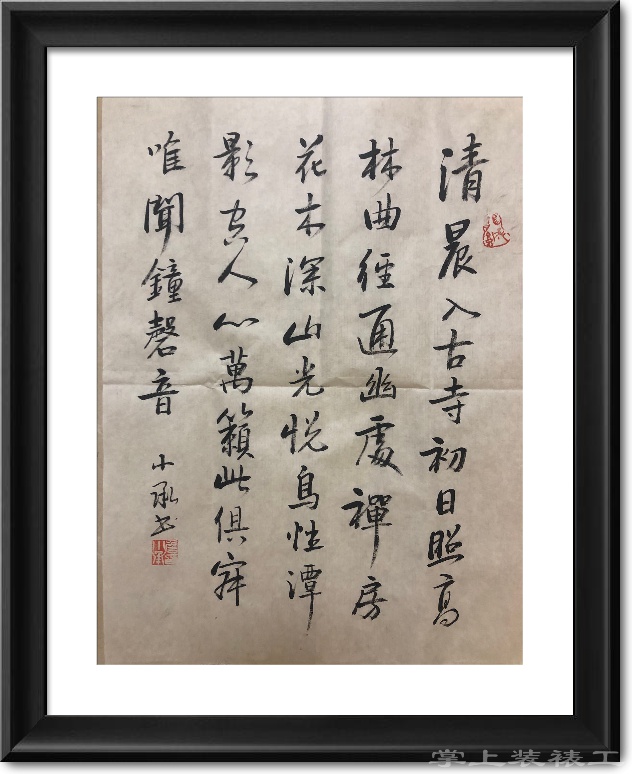 清晨入古寺初日照高
林曲径通幽處禪房
花木深山光悦鳥性潭
影空人心萬籟此俱寂
唯聞鐘磬音
小承书
掌上装裱工